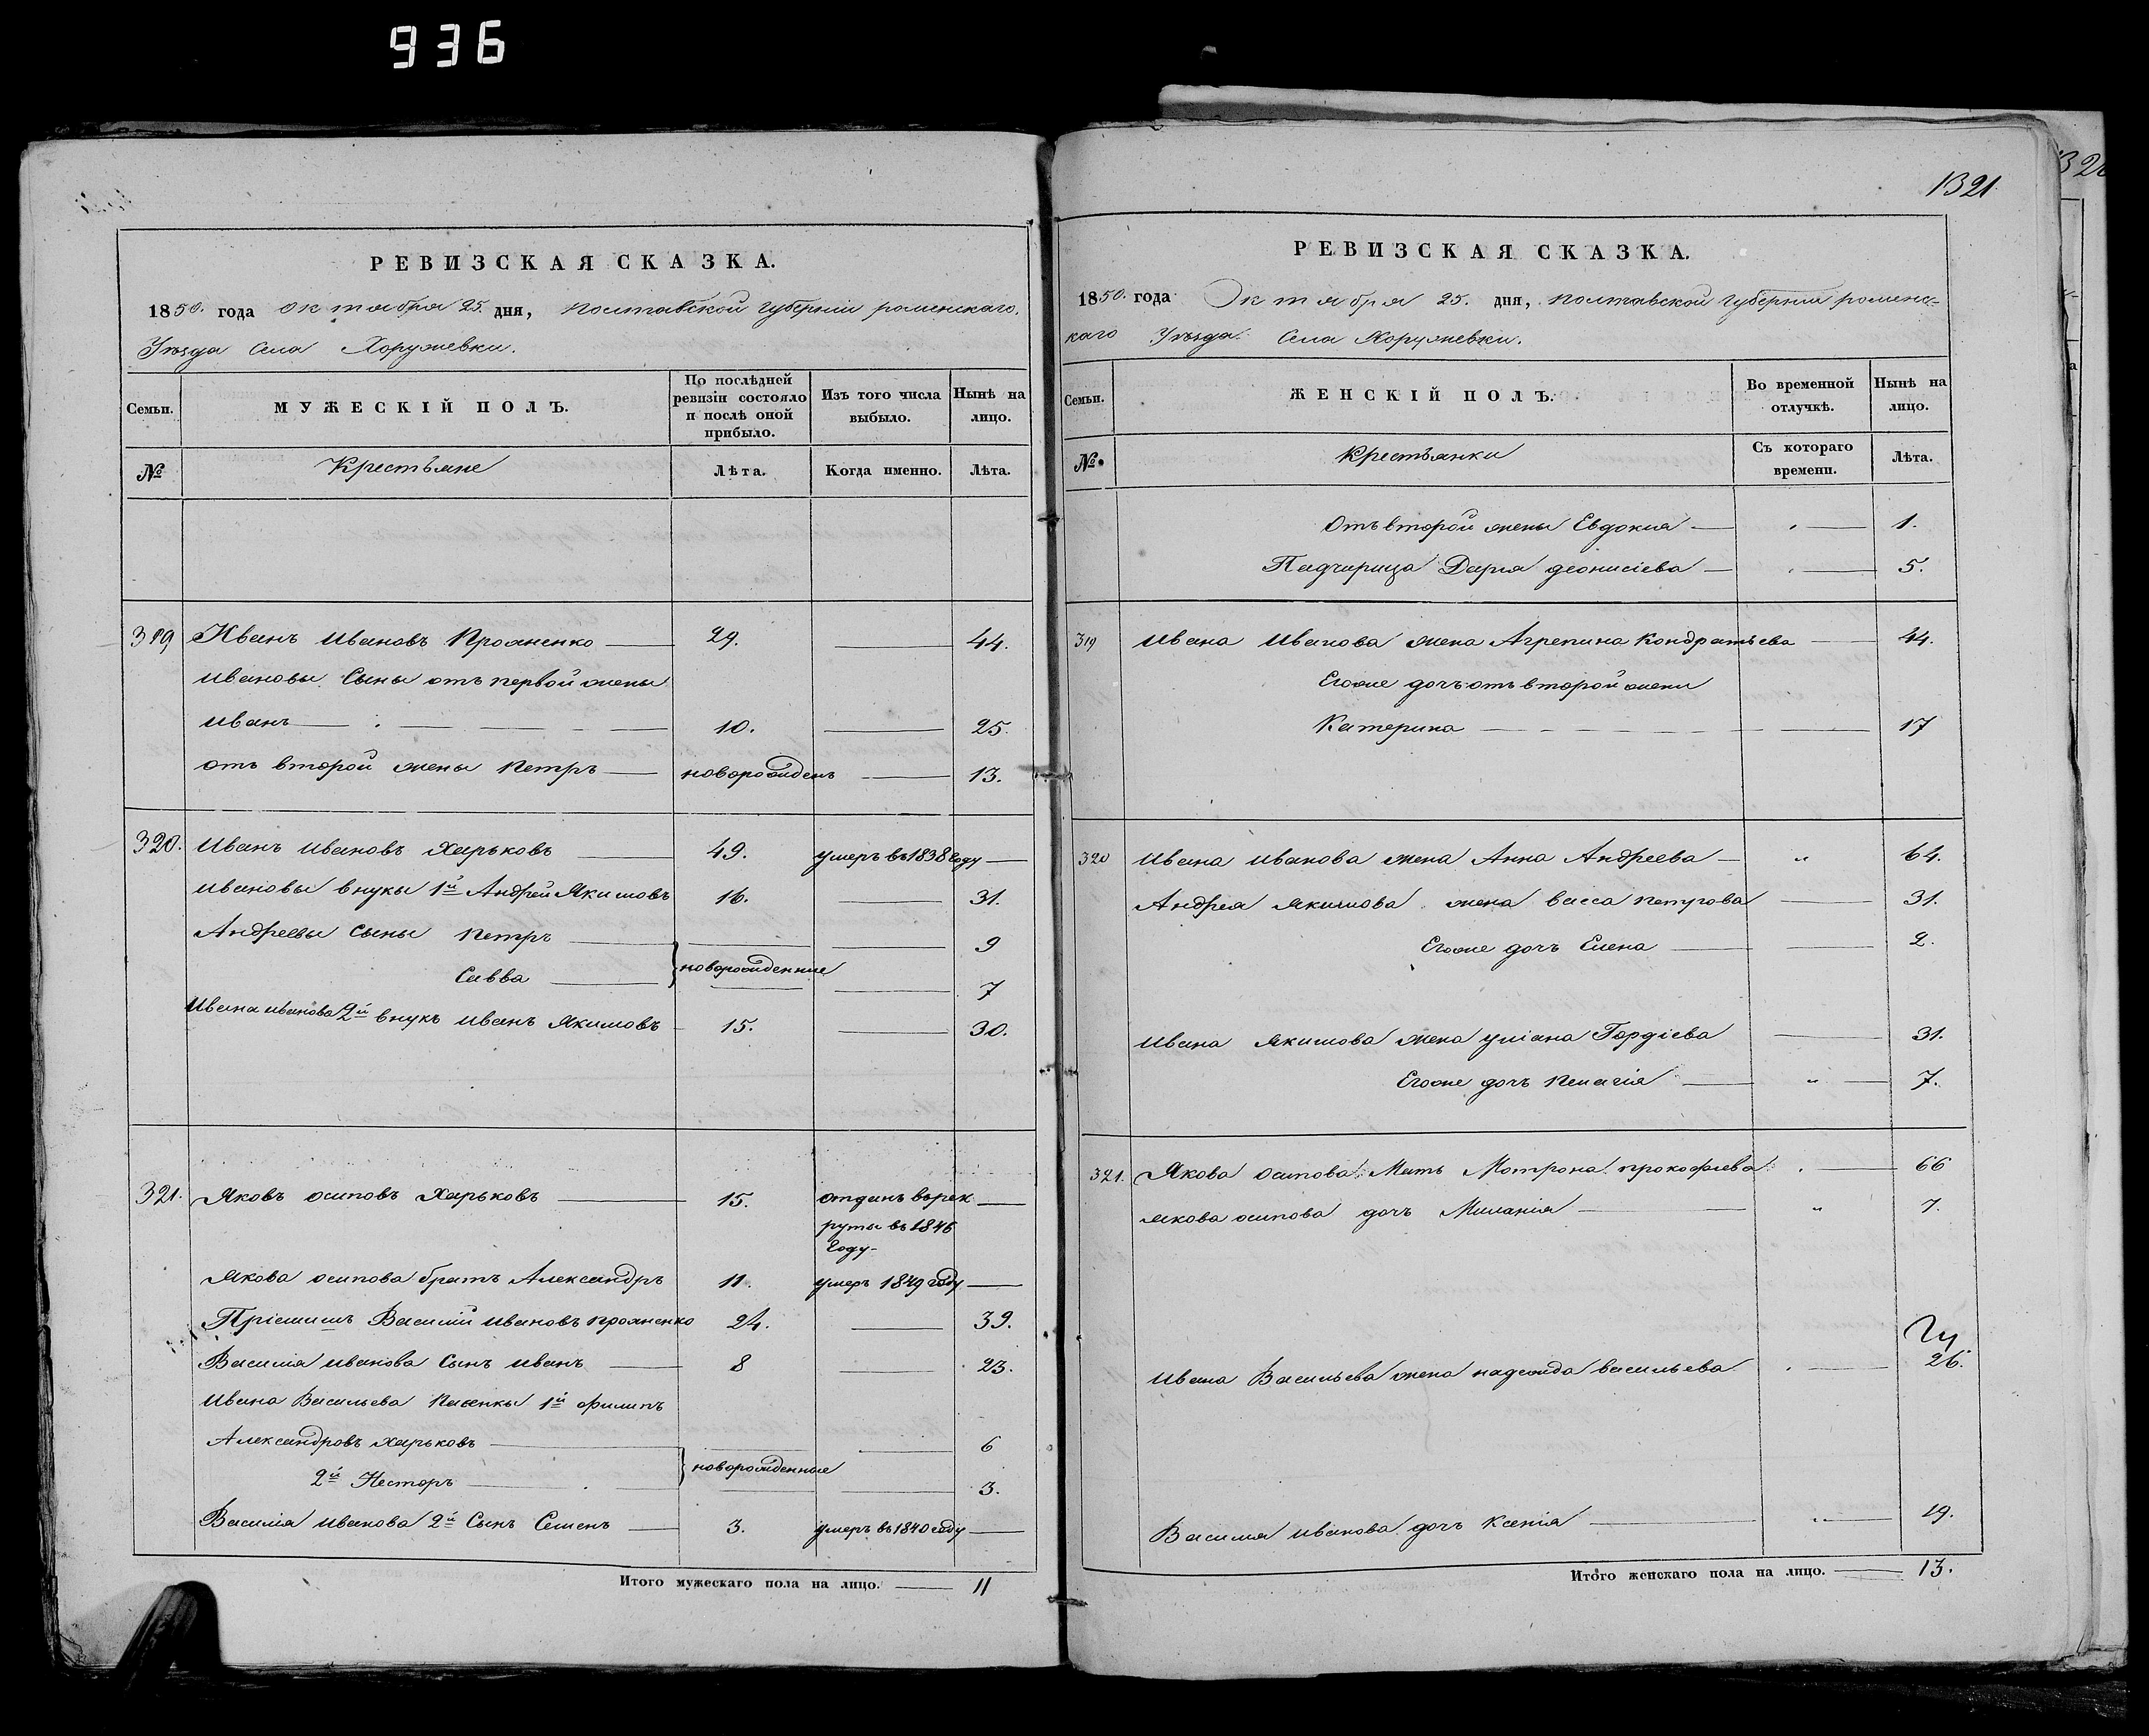 936
РЕВИЗСКАЯ СКАЗКА.
1850. года октября 25. дня, Полтавской Губерніи роменскаго.
Уѣзда Села Хоружевки.
Семьи.
МУЖЕСКІЙ ПОЛЪ.
По послѣдней ревизіи состояло и послѣ оной прибыло.
Изъ того числа выбыло.
Нынѣ на лицо.
№
Крестьяне
Лѣта.
Когда именно.
Лѣта.
319 Иванъ Ивановъ Проненко 29. 44.
Ивановы Сыны отъ первой жены
Иванъ 10. 25.
отъ второй жены Петръ новорожденъ 13.
320. Иванъ Ивановъ Харьковъ 49. умеръ въ 1838 Году
Ивановы внуки 1й Андрей Якимовъ 16. 31.
Андреевы Сыны Петръ 9
Савва новорожденные 7
Ивана Иванова 2й внукъ Иванъ Якимовъ 15. 30.
321. Яковъ Осиповъ Харьковъ 15. отданъ върек
руты въ 1846
Году
Якова Осипова братъ Александръ 11. умеръ 1849 году
Пріемишъ Василій Ивановъ проненко 24. 39.
Василія Иванова Сынъ Иванъ 8 23.
Ивана Васильева Пасенки 1й Филипъ
Александровъ Харьковъ 6
новорожденные
2й Несторъ 3.
Василія Иванова 2й Сынъ Семенъ 3. умеръ въ 1840 году
Итого мужескаго пола на лицо. 11
1321
РЕВИЗСКАЯ СКАЗКА.
1850. года Октября 25. дня, Полтавской Губерніи роменс-
каго Уѣзда Села Хоружевки.
Семьи.
ЖЕНСКІЙ ПОЛЪ.
Во временной отлучкѣ.
Нынѣ на лицо.
№.
Крестьянки
Съ котораго времени.
Лѣта.
Отъ второй жены Евдокия 1.
Падчирица Дарья деонисіева 5.
319 Ивана Иванова жена Агрепина Кондратьева 44.
Егоже дочь отъ второй жени
Катерина 17
320 Ивана Иванова жена Анна Андреева 64.
Андрея Якимова жена васса Петрова 31.
Егоже дочъ Елена 2.
Ивана Якимова жена уліана Гордіева 31.
Егоже дочъ Пелагія 7.
321. Якова Осипова Мать Мотрона прокофиева 66
Якова Осипова дочъ Миланія 7.
Ивана Васильева жена надежда васильева 26.
Василия Иванова дочъ Ксенія 19.
Итого женскаго пола на лицо. 13.